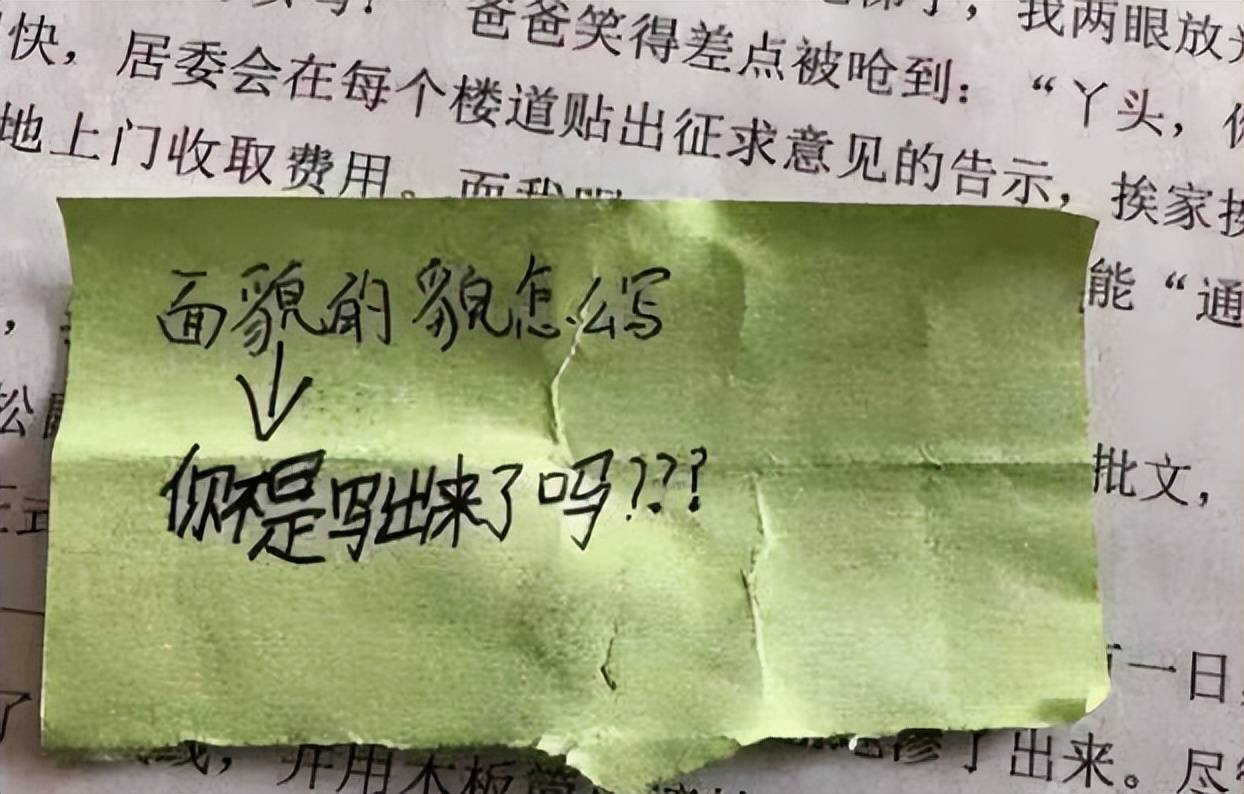 爸爸笑得差点被呛到：“丫头，
我两眼放
快，居委会在每个楼道贴出征求意见的告示，挨家挨
地上门收取费用。而我
面貌的貌怎么写
↓
你不是写出来了吗???
能“通
松
批文，
一日
了
线，并用木板
渗了出来。尽